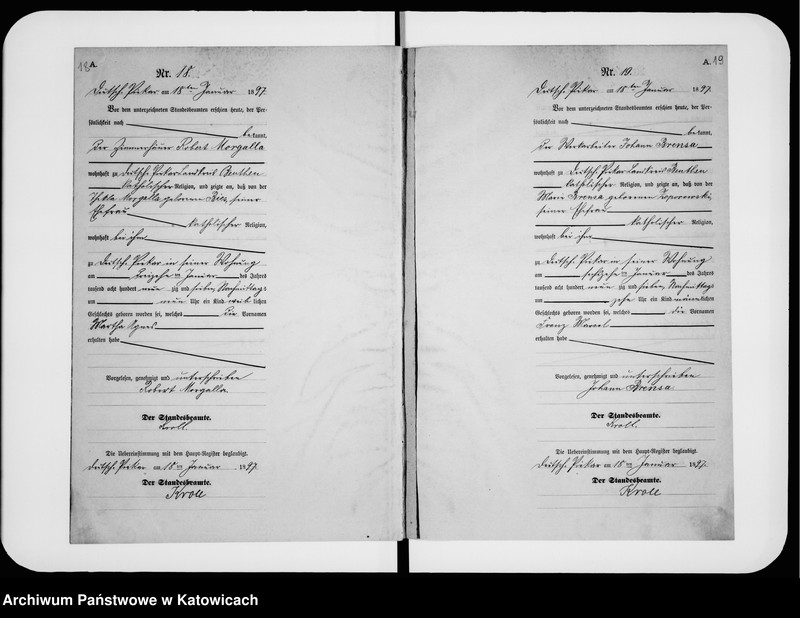 18 A.
Nr. 18.
Deutsch Piekar am 18ten Januar 1897.
Vor dem unterzeichneten Standesbeamten erschien heute, der Per-
sönlichkeit nach
bekannt,
der Zimmerhäuer Robert Morgalla
wohnhaft zu Deutsch Piekar Landkreis Beuthen
katholischer Religion, und zeigte an, daß von der
Thekla Morgalla geborenen seiner
Ehefrau
katholischer Religion,
wohnhaft bei ihm
zu Deutsch Piekar in seiner Wohnung
am ten Januar des Jahres
tausend acht hundert neun zig und sieben Nachmittags
um neun Uhr ein Kind weiblichen
Geschlechts geboren worden sei, welches die Vornamen
Martha Agnes
erhalten habe
Vorgelesen, genehmigt und unterschrieben
Robert Morgalla
Der Standesbeamte.
Kroll.
Die Uebereinstimmung mit dem Haupt-Register beglaubigt.
Deutsch Piekar am 18ten Januar 1897.
Der Standesbeamte.
Kroll
A. 19
Nr. 19.
Deutsch Piekar am 18ten Januar 1897.
Vor dem unterzeichneten Standesbeamten erschien heute, der Per-
sönlichkeit nach
bekannt,
der Johann Brensa
wohnhaft zu Deutsch Piekar Landkreis Beuthen
katholischer Religion, und zeigte an, daß von der
Marie Brensa geborenen
seiner Ehefrau
katholischer Religion,
wohnhaft bei ihm
zu Deutsch Piekar in seiner Wohnung
am ten Januar des Jahres
tausend acht hundert neun zig und sieben Nachmittags
um zehn Uhr ein Kind männlichen
Geschlechts geboren worden sei, welches die Vornamen
Franz Marcel
erhalten habe
Vorgelesen, genehmigt und unterschrieben
Johann Brensa
Der Standesbeamte.
Kroll.
Die Uebereinstimmung mit dem Haupt-Register beglaubigt.
Deutsch Piekar am 18ten Januar 1897.
Der Standesbeamte.
Kroll
Archiwum Państwowe w Katowicach